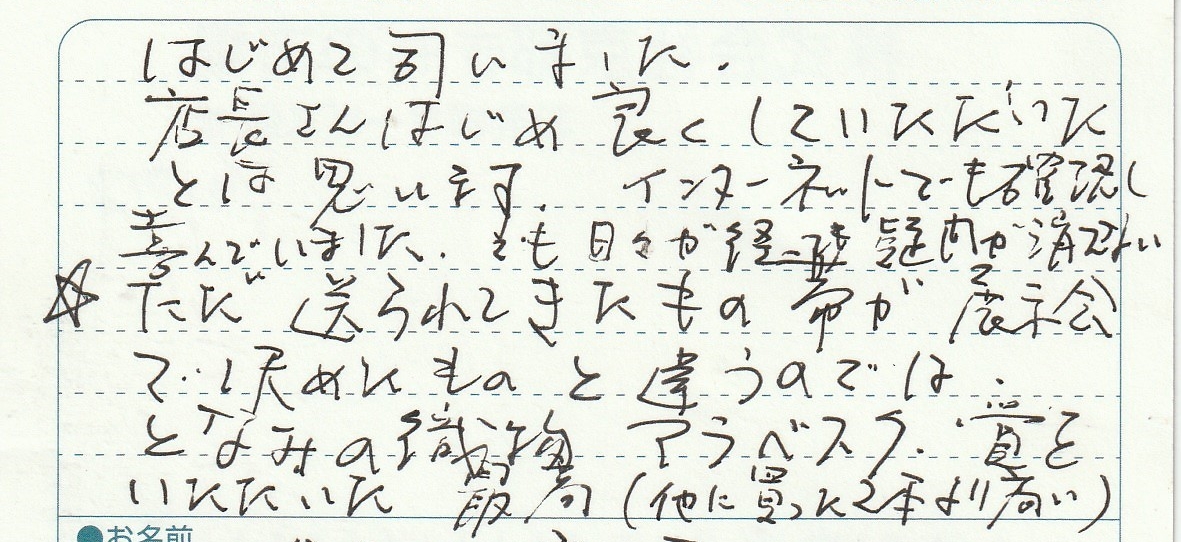 はじめて伺いました.
店長さんはじめ良くしていただいた
とは思います. インターネットでも確認し
喜んでいました. でも日々が経つ 疑問が消えない
☆ ただ送られてきたもの帯が展示会
で決めたものと違うのでは.
となみの織物 アラベスク. 賞を
いただいた 最高 (他に買った2本より高い)
●お名前